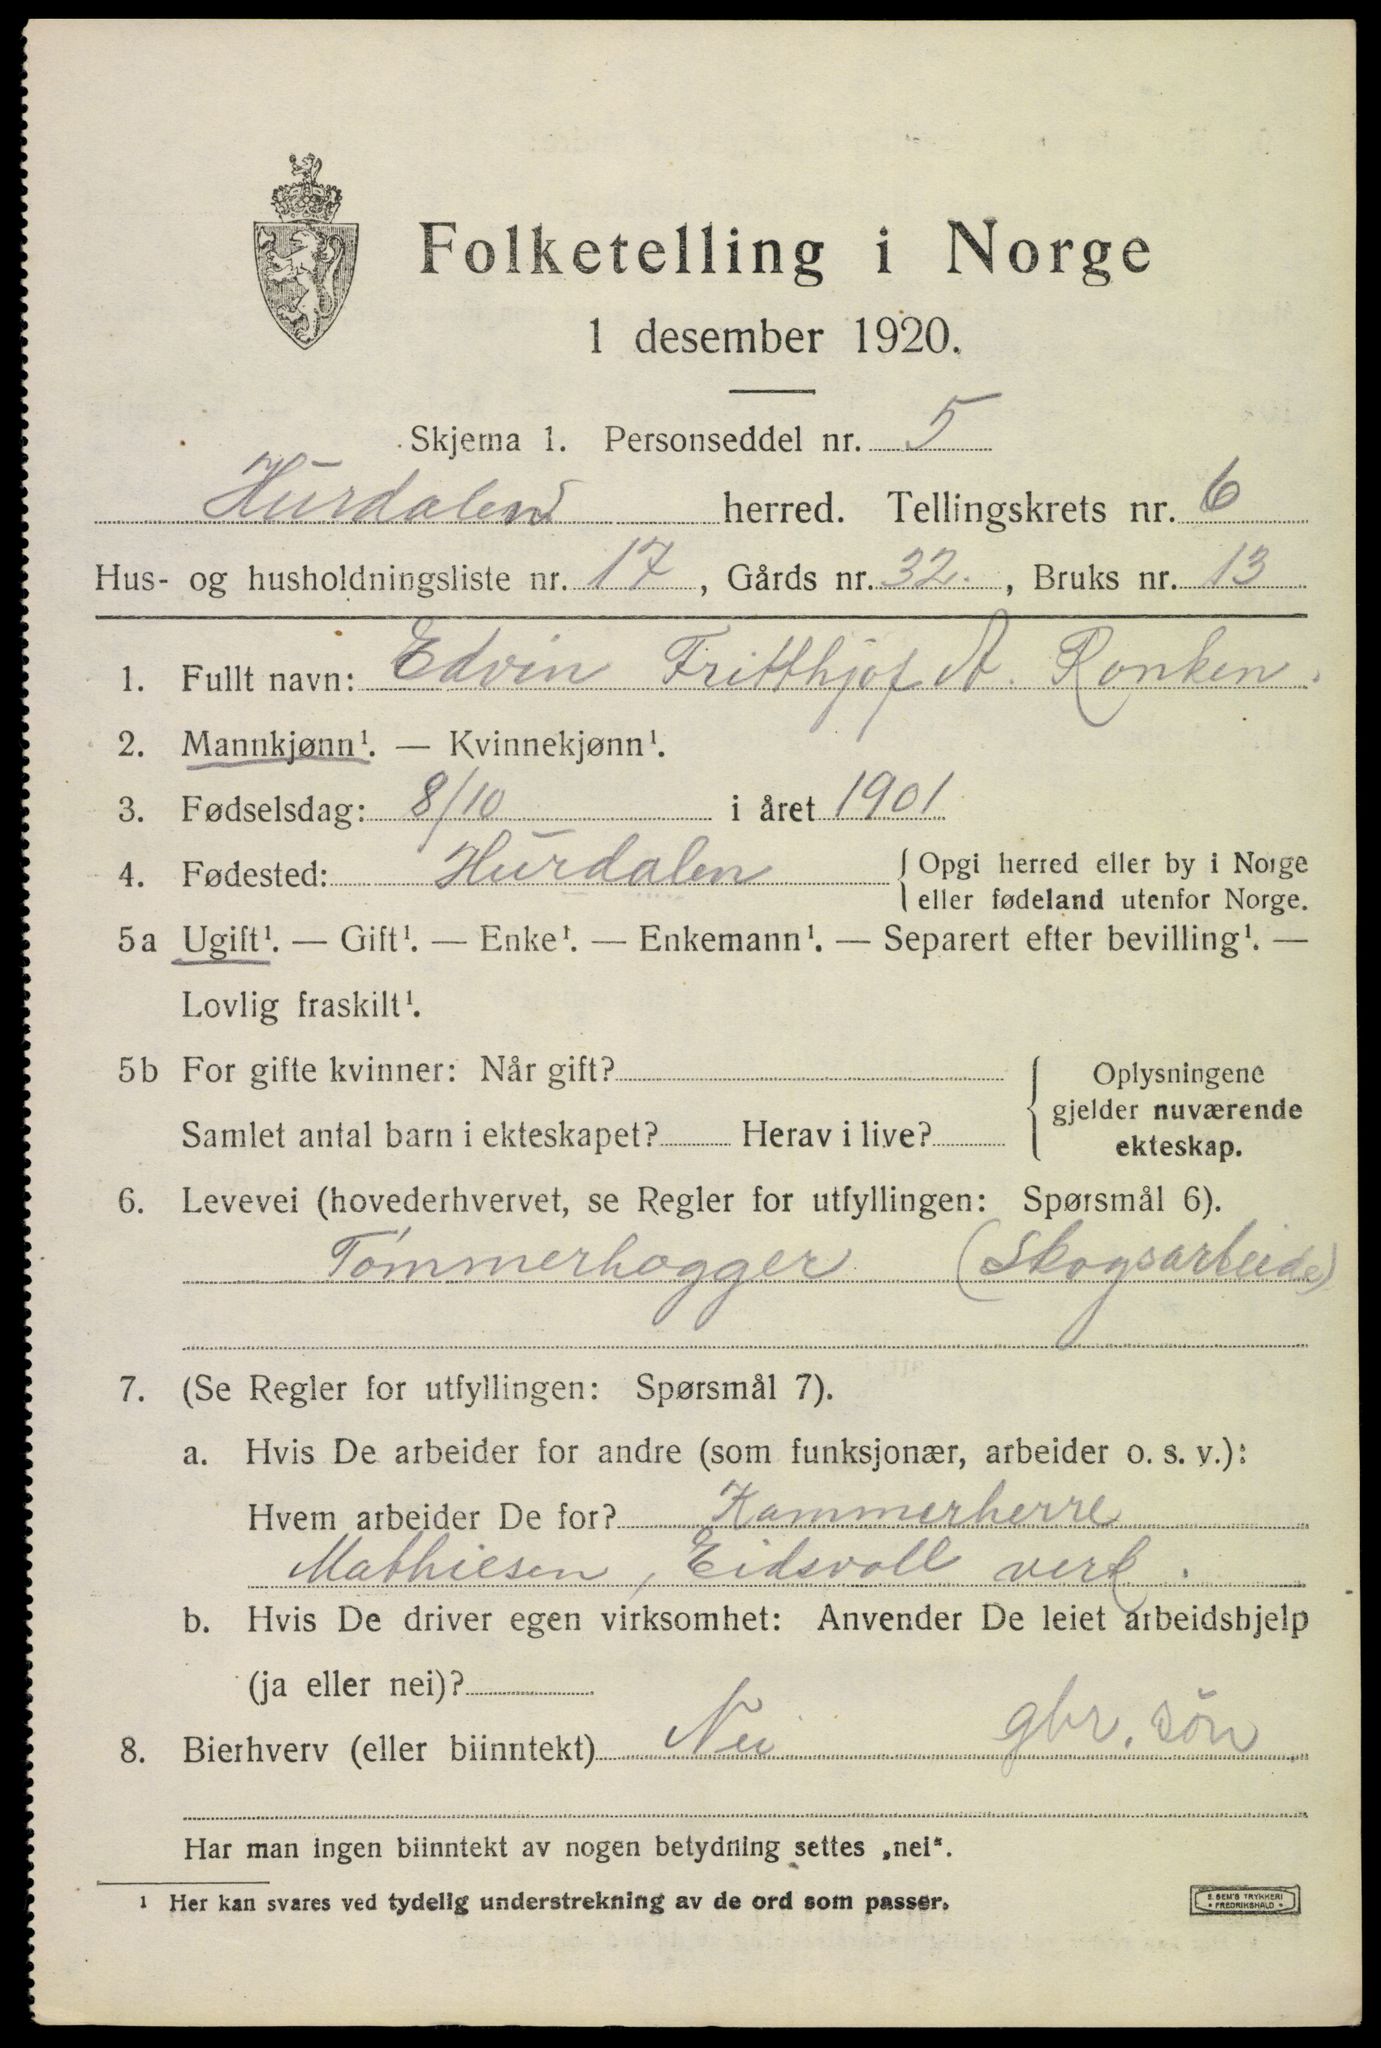 Folketelling i Norge
1 desember 1920.
Skjema 1. Personseddel nr. 5
Hurdalens herred. Tellingskrets nr. 6
Hus- og husholdningsliste nr. 17, Gårds nr. 32., Bruks nr. 13
1. Fullt navn: Edvin Fritthjof A. Ronken.
2. Mannkjønn¹. — Kvinnekjønn¹.
3. Fødselsdag: 8/10 i året 1901
4. Fødested: Hurdalen { Opgi herred eller by i Norge
eller fødeland utenfor Norge.
5a Ugift¹. — Gift¹. — Enke¹. — Enkemann¹. — Separert efter bevilling¹. —
Lovlig fraskilt¹.
5b For gifte kvinner: Når gift?
Samlet antal barn i ekteskapet? Herav i live?
Oplysningene
gjelder nuværende
ekteskap.
6. Levevei (hovederhvervet, se Regler for utfyllingen: Spørsmål 6).
Tømmerhogger (Skogsarbeide)
7. (Se Regler for utfyllingen: Spørsmål 7).
a. Hvis De arbeider for andre (som funksjonær, arbeider o. s. v.):
Hvem arbeider De for? Kammerherre
Mathiesen, Eidsvoll verk.
b. Hvis De driver egen virksomhet: Anvender De leiet arbeidshjelp
(ja eller nei)?
8. Bierhverv (eller biinntekt) Nei gbr. søn
Har man ingen biinntekt av nogen betydning settes „nei“.
¹ Her kan svares ved tydelig understrekning av de ord som passer.
E. SEM'S TRYKKERI
FREDRIKSHALD